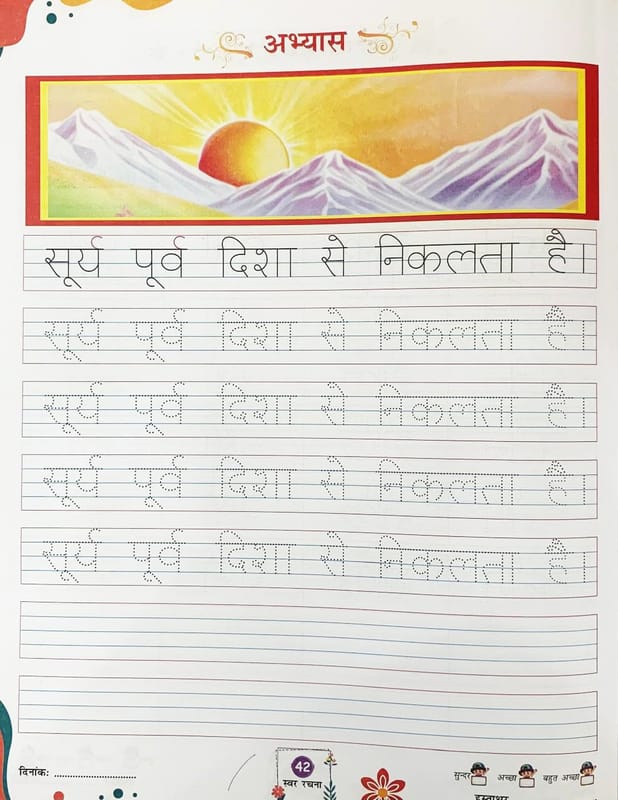 अभ्यास
सूर्य पूर्व दिशा से निकलता है।
सूर्य पूर्व दिशा से निकलता है।
सूर्य पूर्व दिशा से निकलता है।
सूर्य पूर्व दिशा से निकलता है।
सूर्य पूर्व दिशा से निकलता है।
दिनांकः ..............................
42
स्वर रचना
सुन्दर अच्छा बहुत अच्छा
हस्ताक्षर